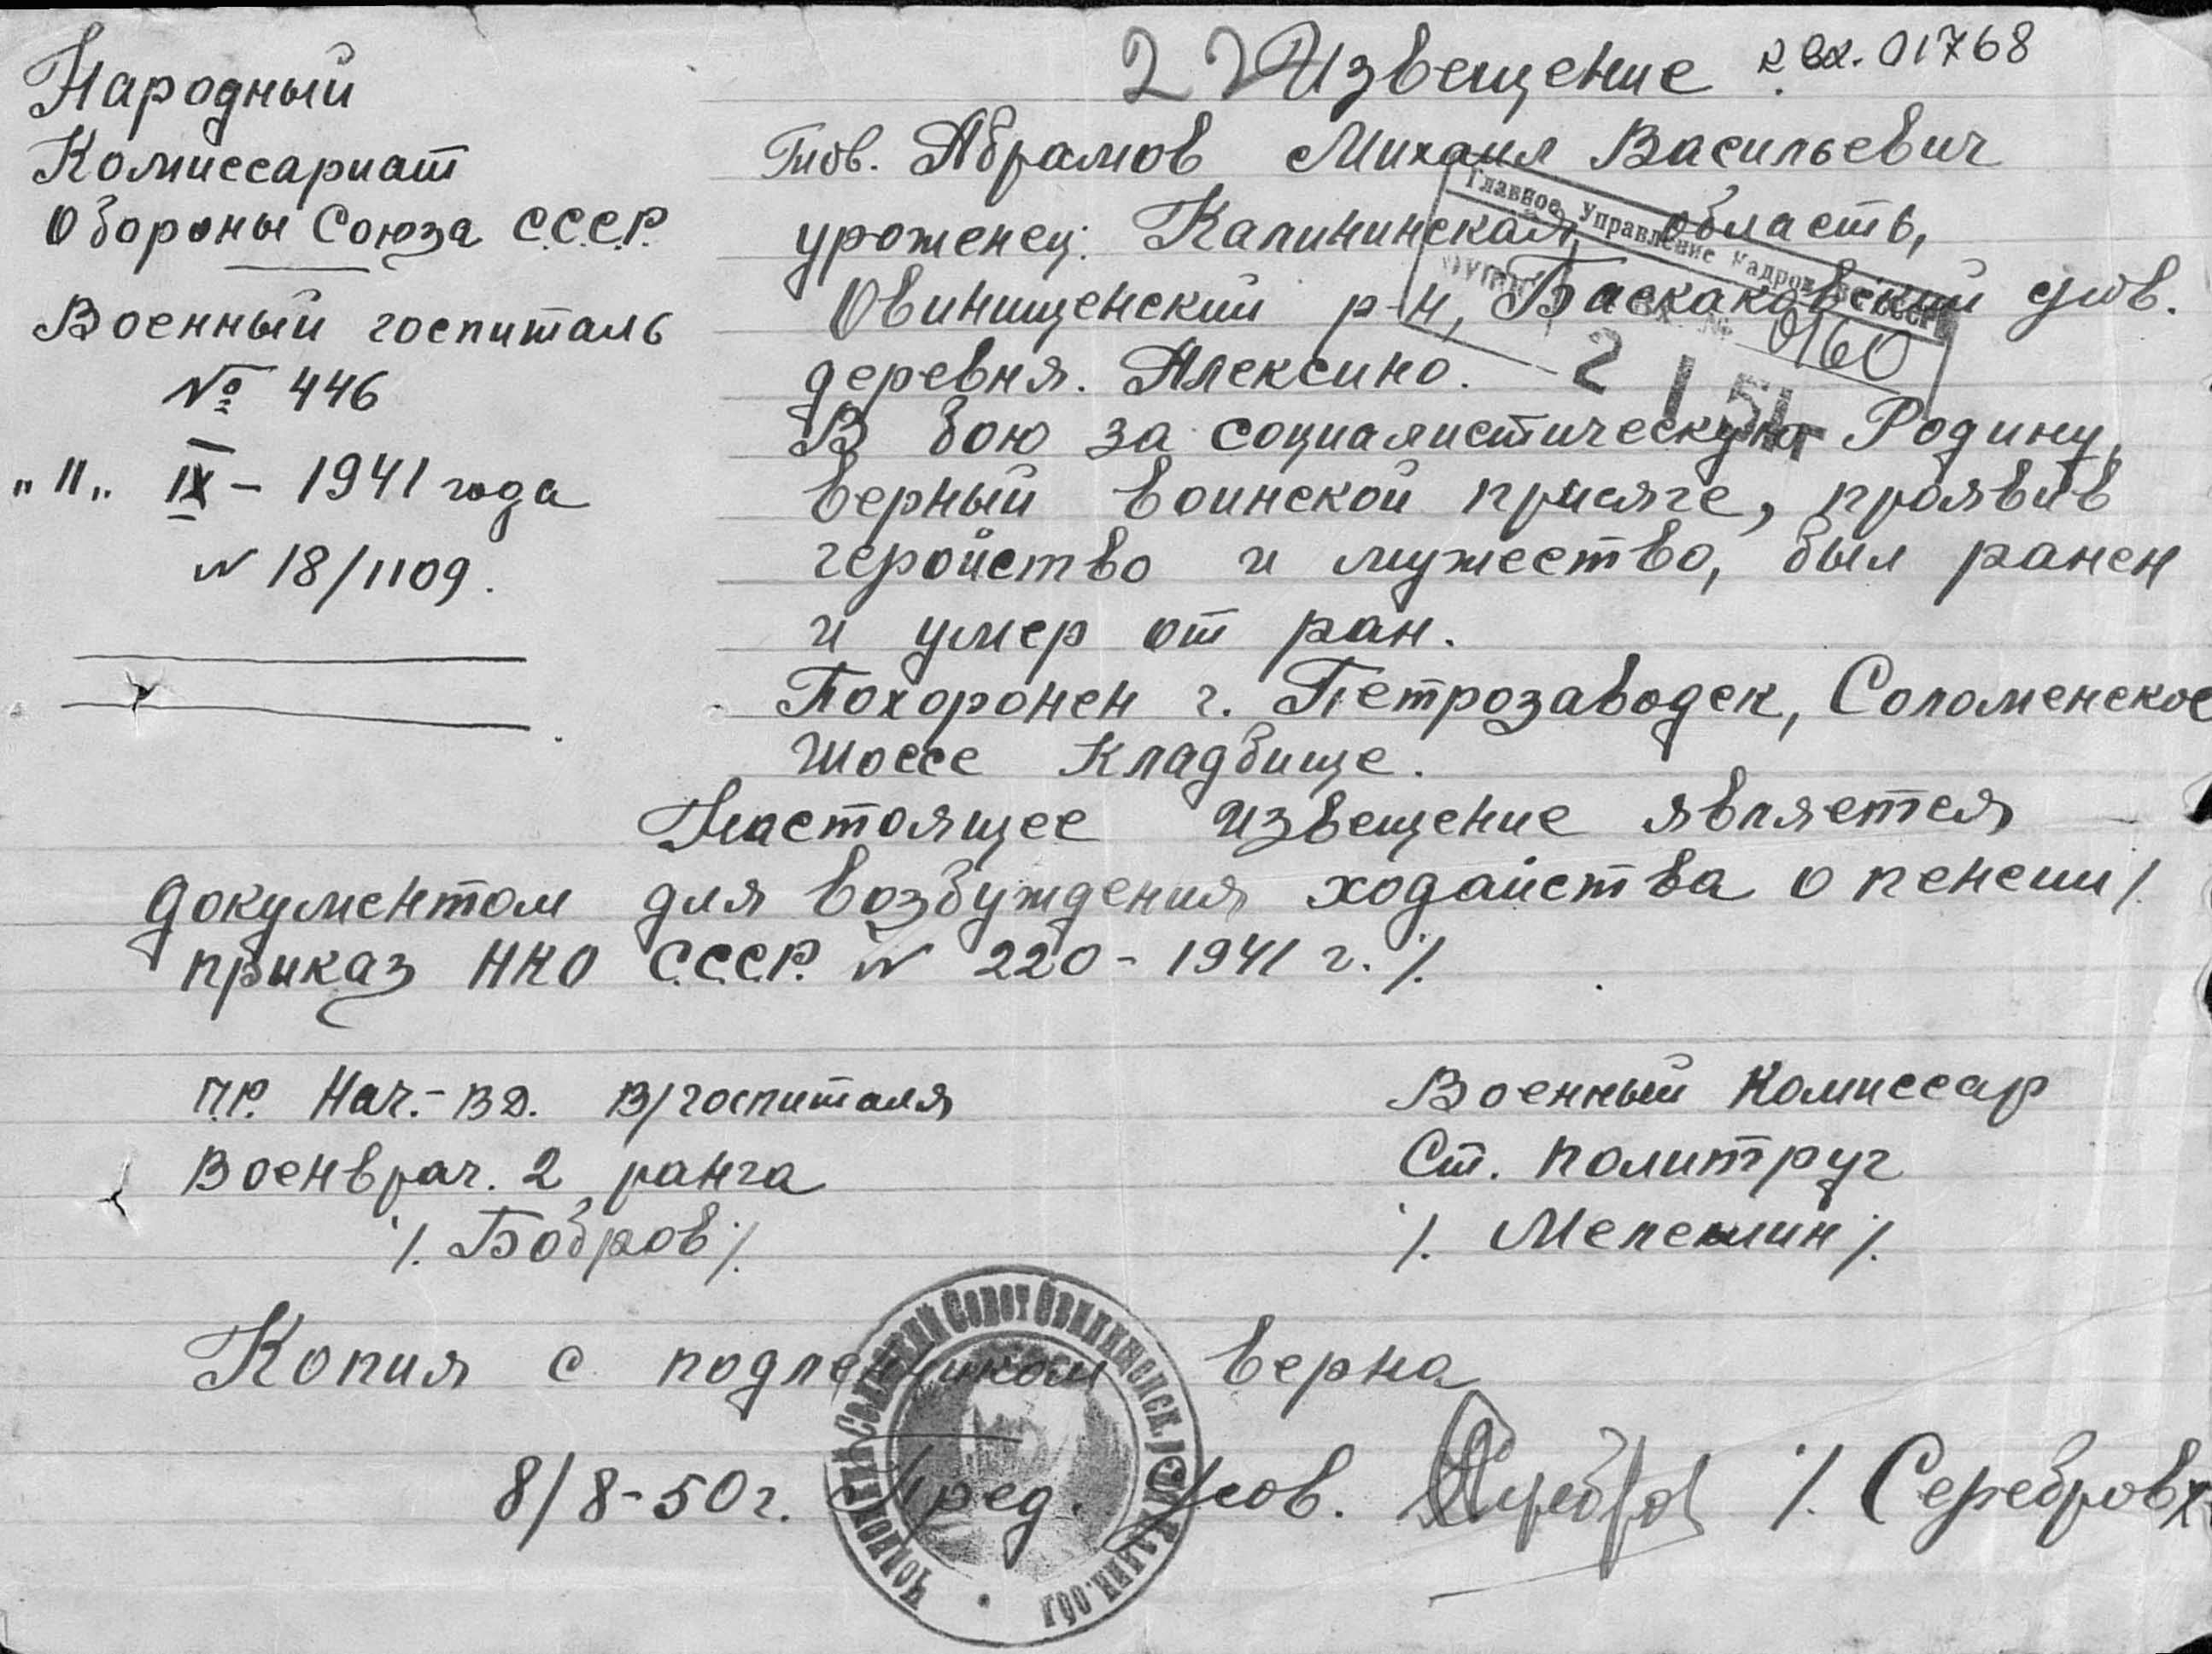 Народный
Комиссариат
Обороны Союза С.С.С.Р.
Военный госпиталь
№ 446
„11„ IX – 1941 года
N 18/1109.
22 Извещение к вх. 01768
Тов. Абрамов Михаил Васильевич
уроженец: Калининская область,
Овинищенский р-н, Баскаковский с/сов.
деревня. Алексино.
В бою за социалистическую Родину,
верный воинской присяге, проявив
геройство и мужество, был ранен
и умер от ран.
Похоронен г. Петрозаводск, Соломенское
шоссе кладбище.
Настоящее извещение является
документом для возбуждения ходайства о пенсии /.
приказ НКО С.С.С.Р. N 220 – 1941 г. /.
Главное Управление Кадров
0160
2 I 51
П.Р. Нач.-ВД. В/госпиталя
Военврач. 2 ранга
/. Бобров /.
Военный Комиссар
Ст. политруг
/. Мелешин /.
Копия с подленником верна
8/8-50 г. Пред. с/сов. /. Серебров
Сельский Совет Овинищенск. Калинин. обл